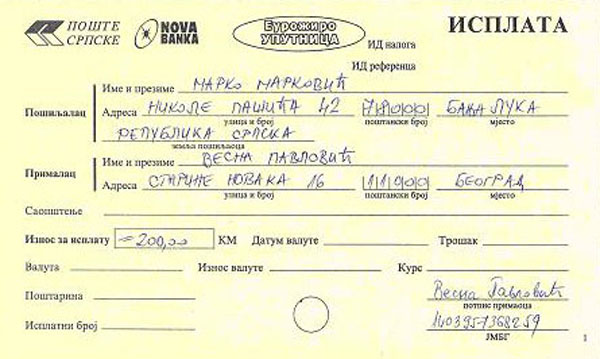 ПОШТЕ СРПСКЕ NOVA BANKA Еурожиро УПУТНИЦА ИСПЛАТА
ИД налога
ИД референца
Име и презиме МАРКО МАРКОВИЋ
Пошиљалац Адреса НИКОЛЕ ПАШИЋА 42 78000 БАЊА ЛУКА
улица и број поштански број мјесто
РЕПУБЛИКА СРПСКА
земља пошиљаоца
Име и презиме ВЕСНА ПАВЛОВИЋ
Прималац
Адреса СТАРИНЕ НОВАКА 16 11900 БЕОГРАД
улица и број поштански број мјесто
Саопштење
Износ за исплату =200,00 КМ Датум валуте Трошак
Валута Износ валуте Курс
Поштарина Весна Павловић
потпис примаоца
Исплатни број 140395-7368259
ЈМБГ 1